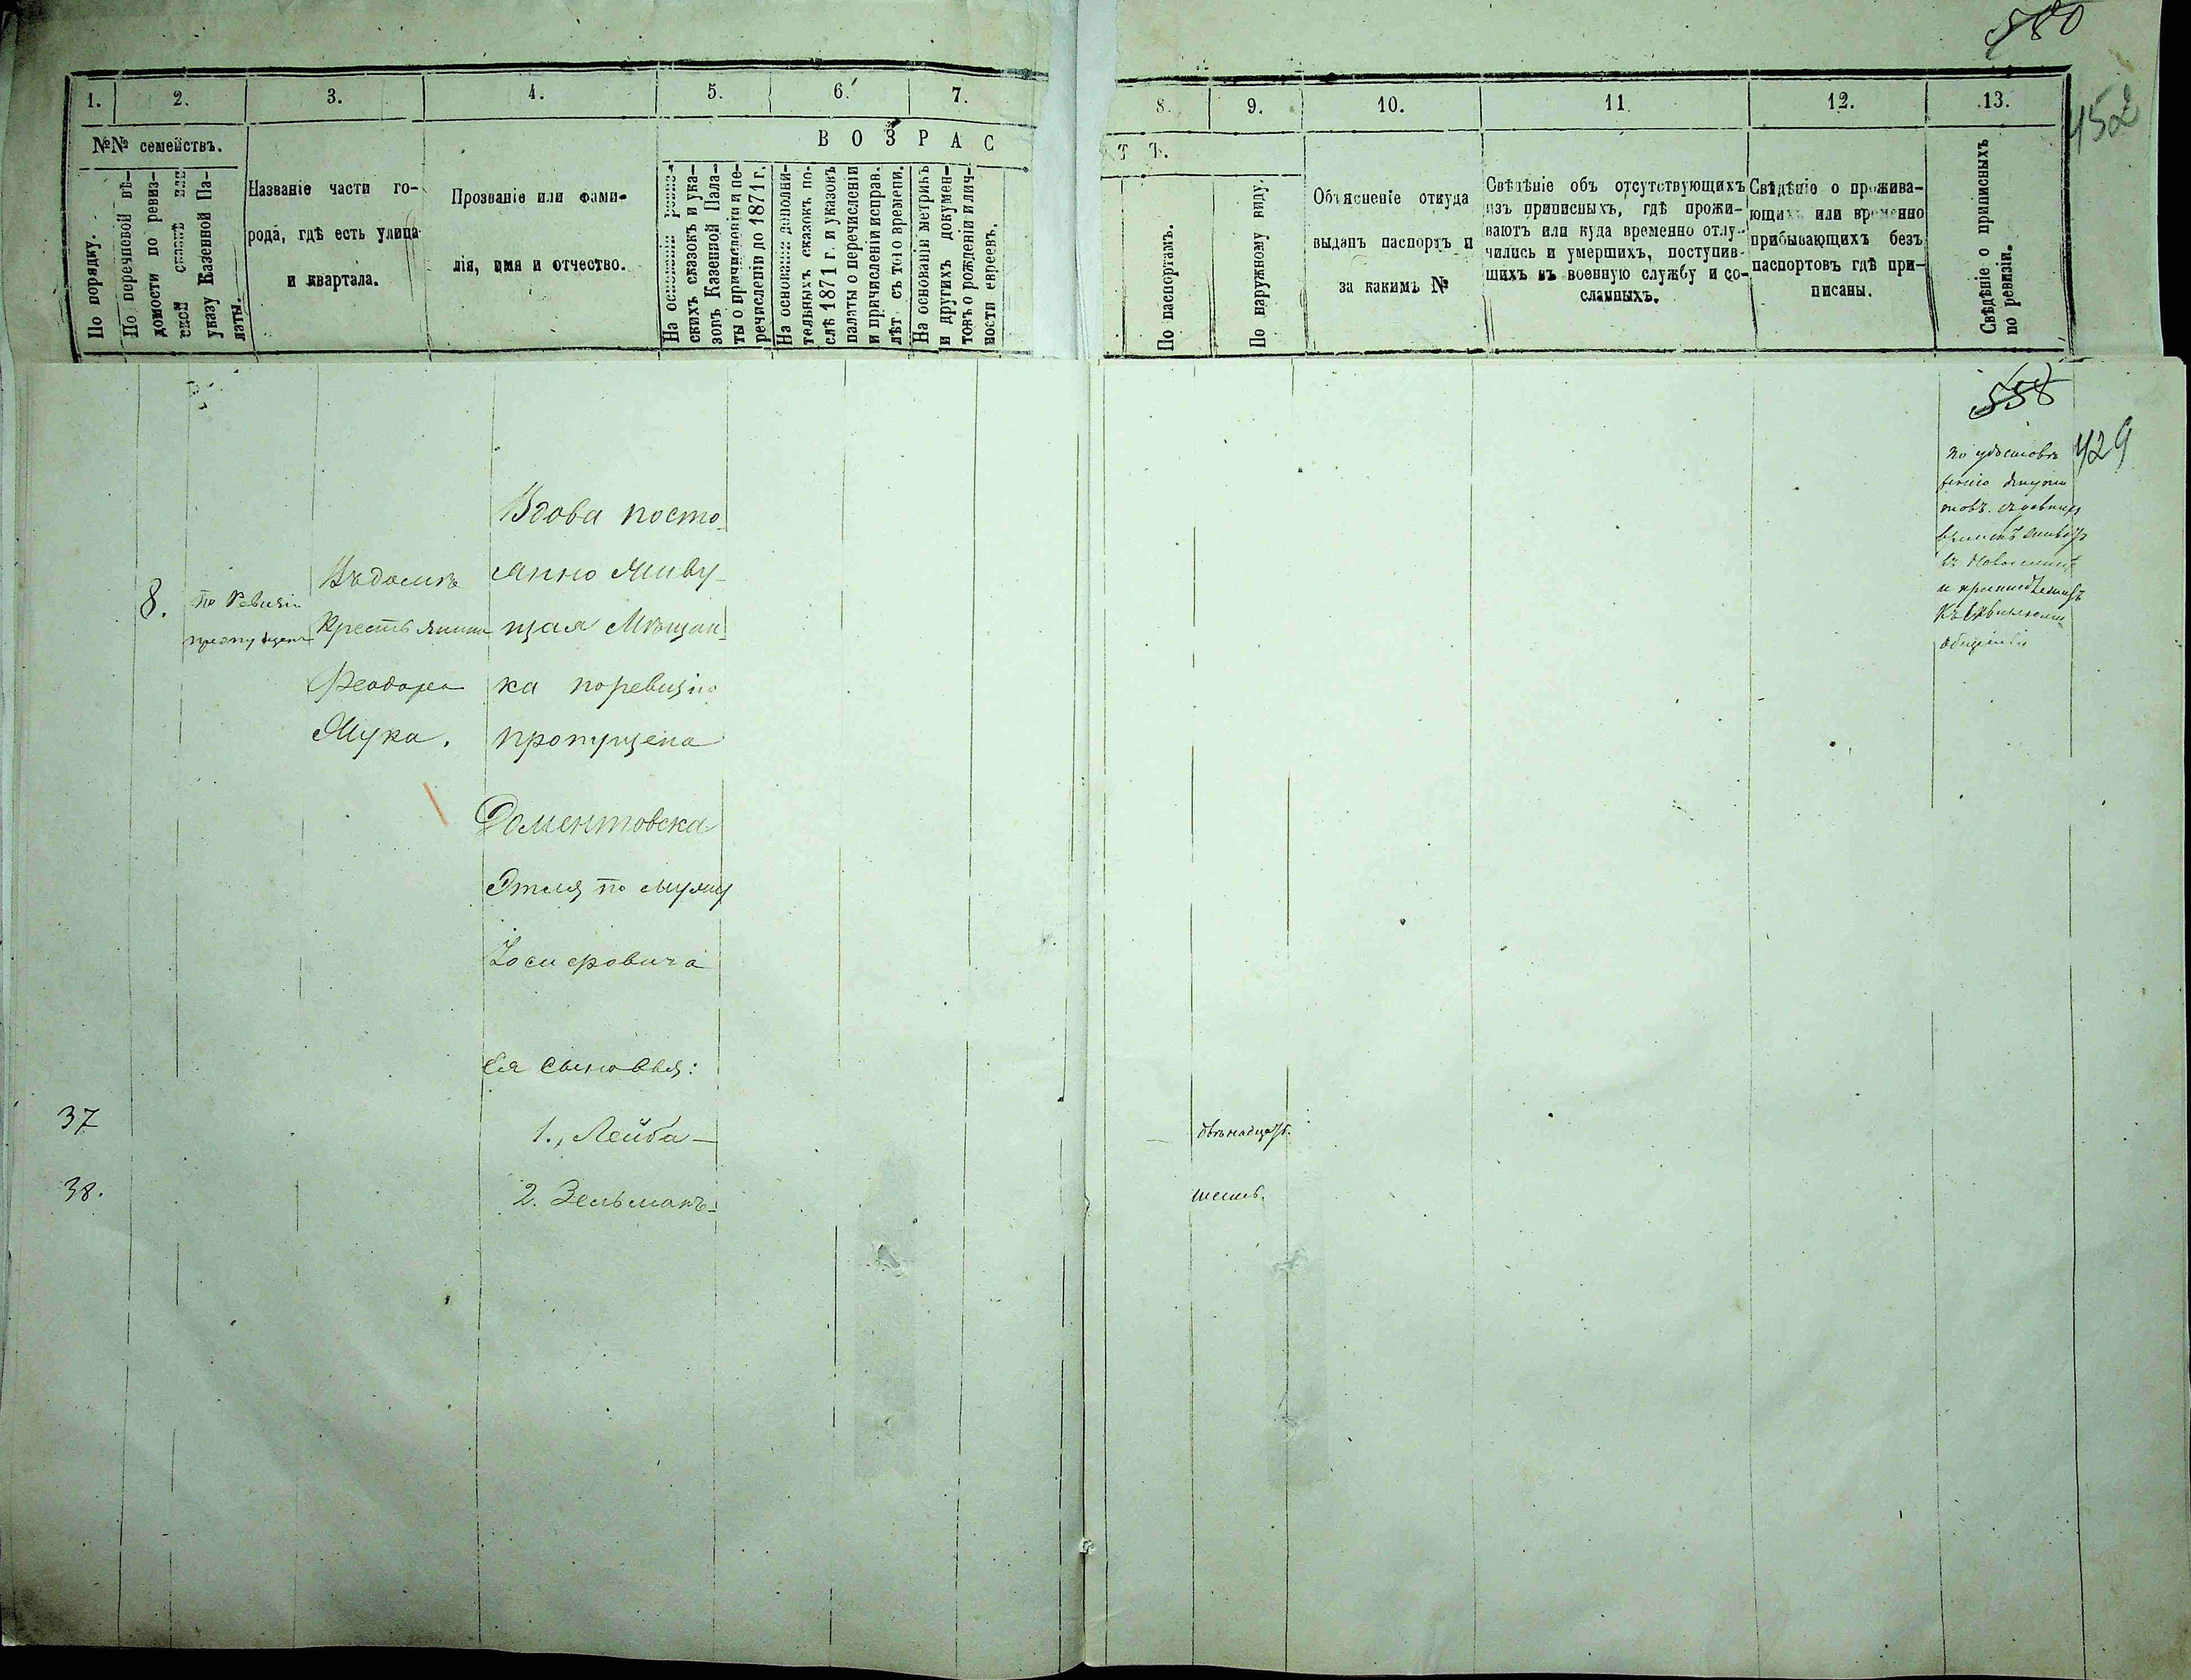 580
452
1.
2.
3.
4.
5.
6.
7.
8.
9.
10.
11.
12.
13.
№№ семействъ.
По порядку.
По перечневой вѣ-
домости по ревиз-
ской сказкѣ или
указу Казенной Па-
латы.
Названіе части го-
рода, гдѣ есть улица
и квартала.
Прозваніе или фами-
лія, имя и отчество.
В О З Р А С
Т Ъ.
На основаніи ревиз-
скихъ сказокъ и ука-
зовъ Казенной Пала-
ты о причисленіи и пе-
речисленіи до 1871 г.
На основаніи дополни-
тельныхъ сказокъ по-
слѣ 1871 г. и указовъ
палаты о перечисленіи
и причисленіи исправ.
лѣт съ того времени.
На основаніи метрикъ
и другихъ докумен-
товъ о рожденіи и лич-
ности евреевъ.
По паспортамъ.
По наружному виду.
Объясненіе откуда
выданъ паспортъ и
за какимъ №
Свѣдѣніе объ отсутствующихъ
изъ приписныхъ, гдѣ прожи-
ваютъ или куда временно отлу-
чились и умершихъ, поступив-
шихъ въ военную службу и со-
сланныхъ.
Свѣдѣніе о прожива-
ющихъ или временно
прибывающихъ безъ
паспортовъ гдѣ при-
писаны.
Свѣдѣніе о приписныхъ
по ревизіи.
558
429
8.
по Ревизіи
пропущена
Въ домѣ
Крестьянина
Феодора
Мука.
Вдова посто-
янно живу-
щая Мѣщан-
ка по ревизіи
пропущена
Доментовска
Этля по мужу
Іосифовича
Ея сыновья:
37
1., Лейба —
двѣнадцать.
38.
2. Зельманъ —
шесть.
по удостовѣ
ренію
и
Обществу